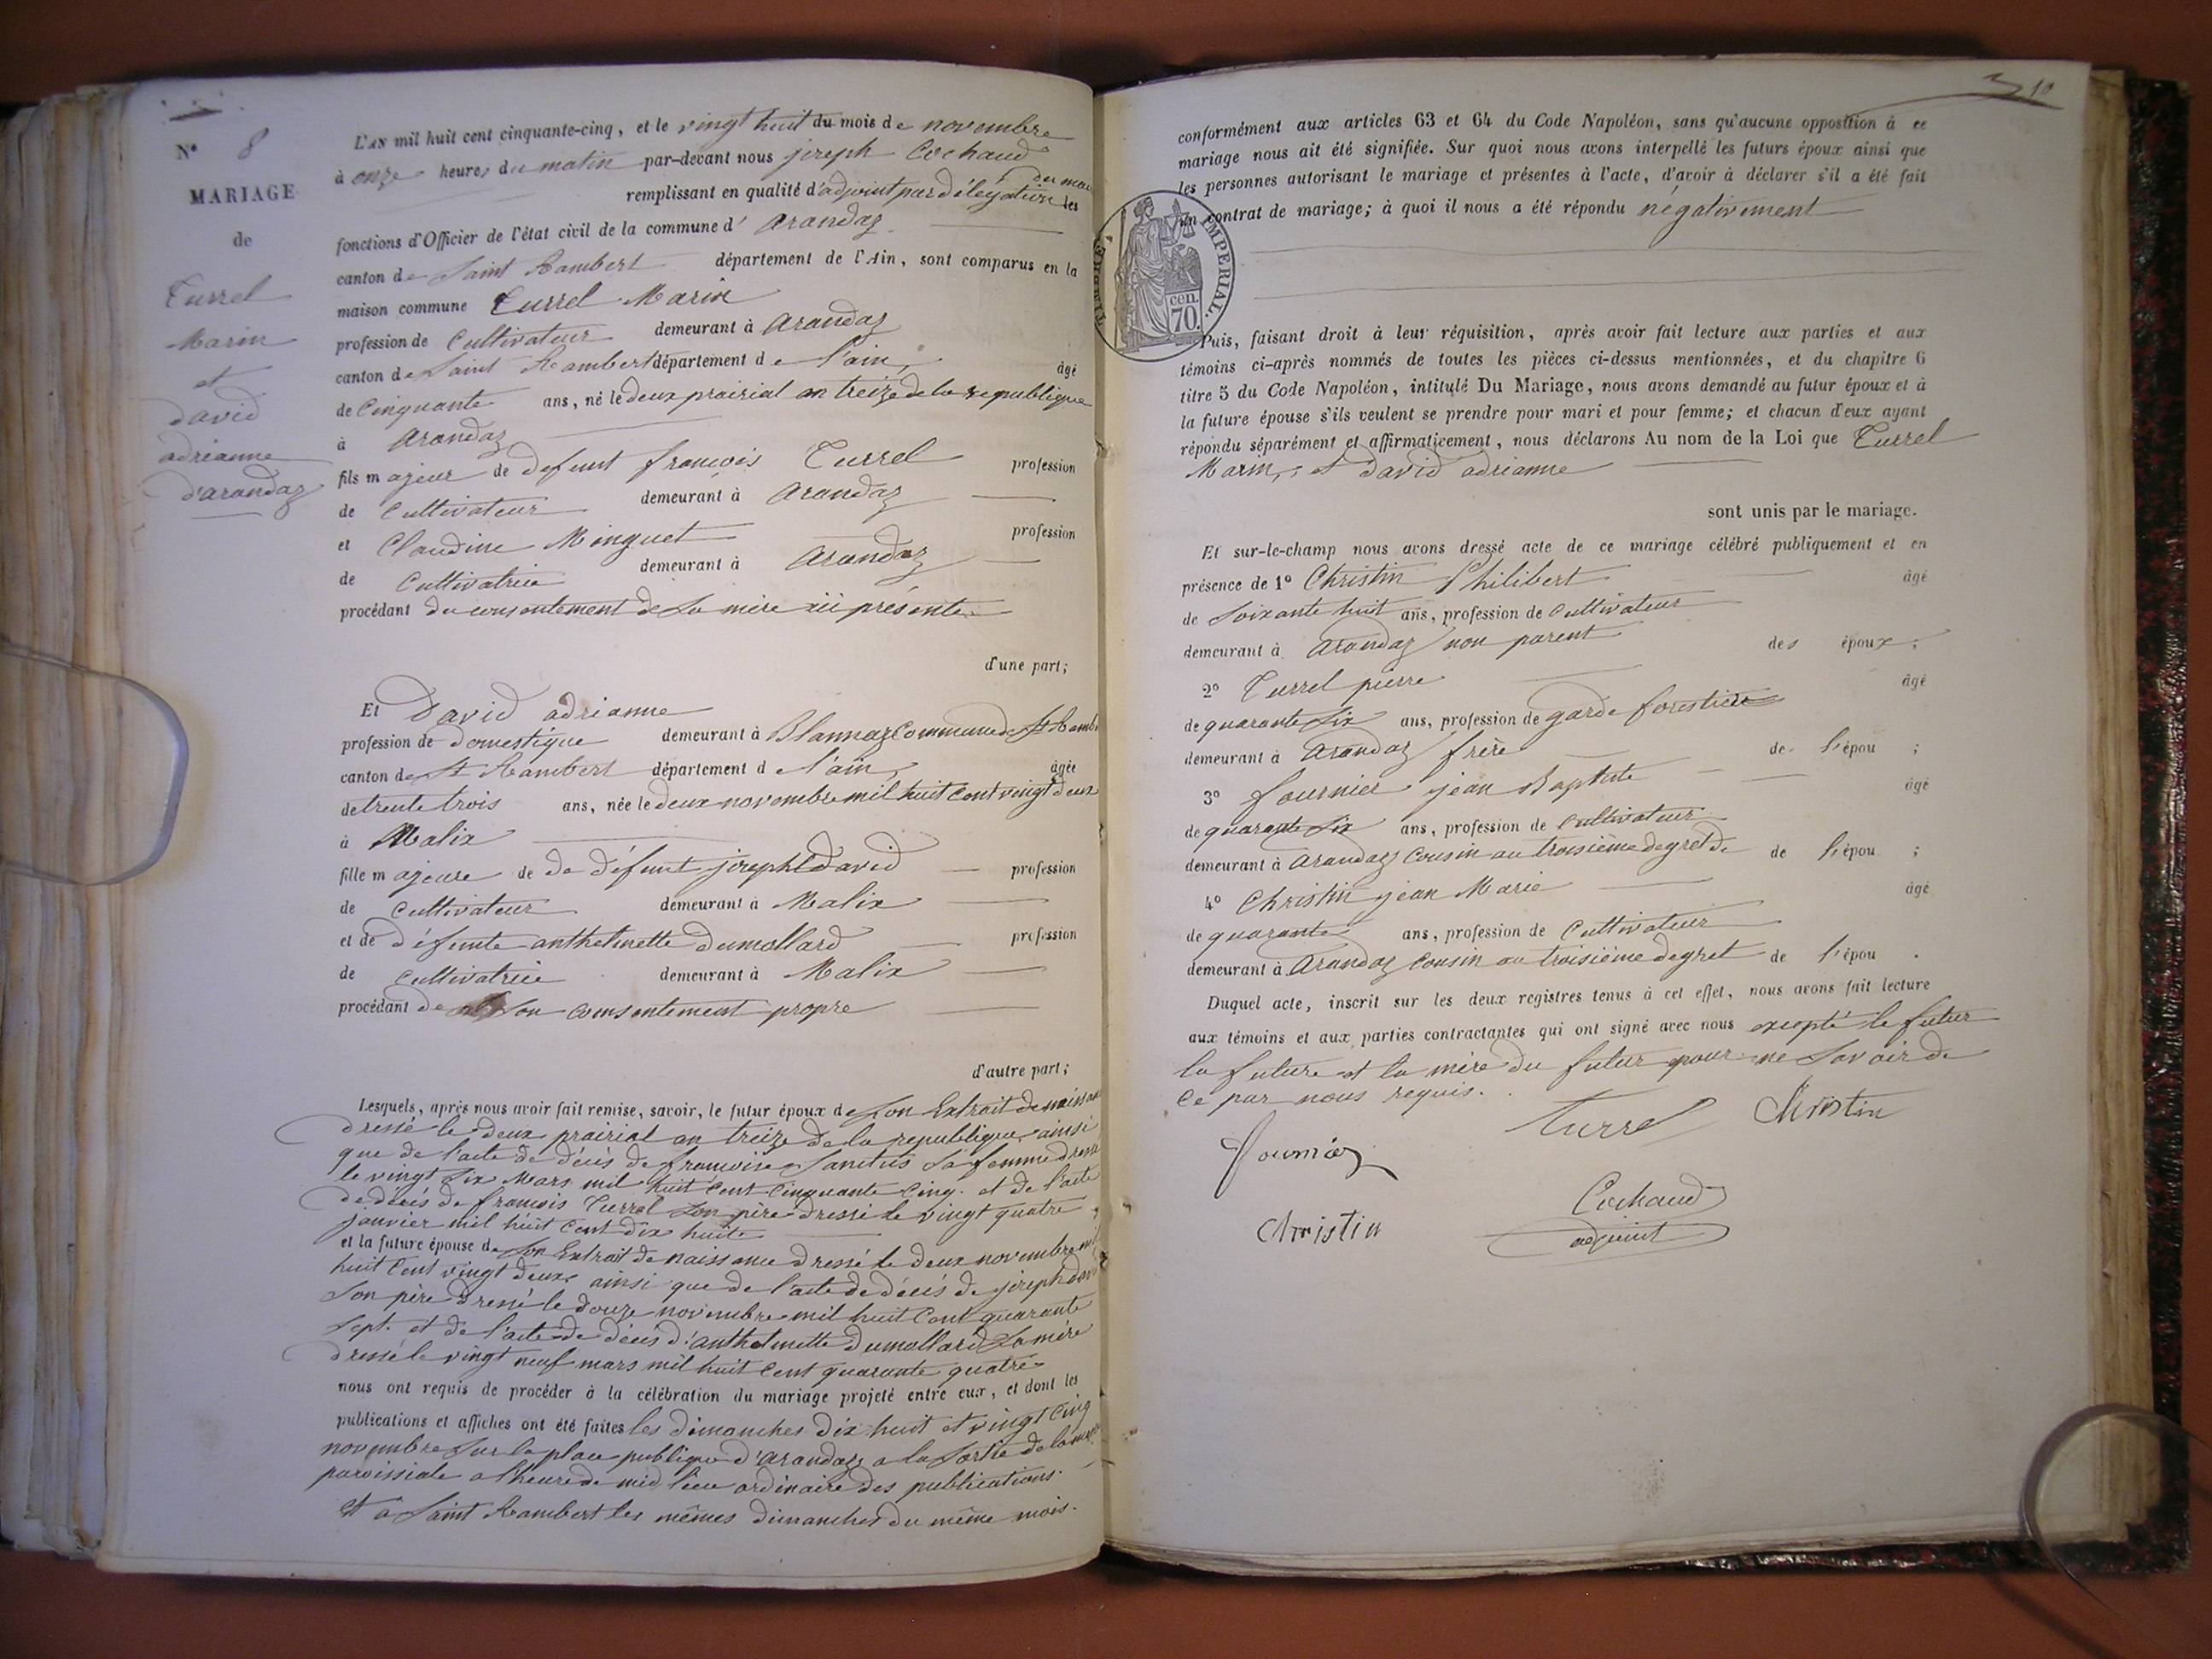 N° 8
MARIAGE
de
Turrel
Marin
et
david
adrianne
d'arandaz
L'AN mil huit cent cinquante-cinq, et le vingt huit du mois de novembre
à onze heures du matin par-devant nous joseph Cochaud
remplissant en qualité d'adjoint par délégation du maire les
fonctions d'Officier de l'état civil de la commune d' arandaz
canton de Saint Rambert département de l'Ain, sont comparus en la
maison commune Turrel Marin
profession de Cultivateur demeurant à arandaz
canton de Saint Rambert département de l'ain, âgé
de Cinquante ans, né le deux prairial an treize de la republique
à arandaz
fils majeur de defunt francois Turrel profession
de Cultivateur demeurant à arandaz
et Claudine Minguet profession
de Cultivatrice demeurant à arandaz
procédant du consentement de la mère ici présente.
d'une part;
Et David adrianne
profession de domestique demeurant à Blannaz Commune de St Rambe
canton de St Rambert département de l'ain, âgée
de trente trois ans, née le deux novembre mil huit cent vingt deux
à Malix
fille majeure de de défunt joseph David profession
de Cultivateur demeurant à Malix
et de défunte anthelmette Dumollard profession
de cultivatrice demeurant à Malix
procédant de son consentement propre
d'autre part;
Lesquels, après nous avoir fait remise, savoir, le futur époux de son Extrait de naissance
dressé le deux prairial an treize de la republique, ainsi
que de l'acte de décès de francoise Sanctus sa femme dressé
le vingt six Mars mil huit cent cinquante cinq. et de l'acte
de décès de francois Turrel son père dressé le vingt quatre
janvier mil huit cent dix huit
et la future épouse de son Extrait de naissance dressé le deux novembre mil
huit cent vingt deux ainsi que de l'acte de décès de joseph david
son père dressé le douze novembre mil huit cent quarante
sept. et de l'acte de décès d'anthelmette Dumollard sa mère
dressé le vingt neuf mars mil huit cent quarante quatre
nous ont requis de procéder à la célébration du mariage projeté entre eux, et dont les
publications et affiches ont été faites les dimanches dix huit et vingt cinq
novembre sur la place publique d'arandaz, a la sortie de la messe
paroissiale a lheure de midi lieu ordinaire des publications.
et a Saint Rambert les mêmes dimanches du même mois.
10
conformément aux articles 63 et 64 du Code Napoléon, sans qu'aucune opposition à ce
mariage nous ait été signifiée. Sur quoi nous avons interpellé les futurs époux ainsi que
les personnes autorisant le mariage et présentes à l'acte, d'avoir à déclarer s'il a été fait
un contrat de mariage; à quoi il nous a été répondu négativement
TIMBRE IMPERIAL.
cen.
70.
Puis, faisant droit à leur réquisition, après avoir fait lecture aux parties et aux
témoins ci-après nommés de toutes les pièces ci-dessus mentionnées, et du chapitre 6
titre 5 du Code Napoléon, intitulé Du Mariage, nous avons demandé au futur époux et à
la future épouse s'ils veulent se prendre pour mari et pour femme; et chacun d'eux ayant
répondu séparément et affirmativement, nous déclarons Au nom de la Loi que Turrel
Marin, et David adrianne
sont unis par le mariage.
Et sur-le-champ nous avons dressé acte de ce mariage célébré publiquement et en
présence de 1° Christin Philibert âgé
de soixante huit ans, profession de Cultivateur
demeurant à arandaz non parent des époux;
2° Turrel pierre âgé
de quarante six ans, profession de garde forestière
demeurant à arandaz frère de l'épou ;
3° fournier jean Baptiste âgé
de quarante six ans, profession de Cultivateur
demeurant à arandaz Cousin au troisième degret de de l'épou ;
4° Christin jean Marie âgé
de quarante ans, profession de Cultivateur
demeurant à arandaz cousin au troisième degret de l'épou .
Duquel acte, inscrit sur les deux registres tenus à cet effet, nous avons fait lecture
aux témoins et aux parties contractantes qui ont signé avec nous excepté le futur
la future et la mère du futur pour ne savoir de
ce par nous requis.
Turrel Christin
Fournier
Cochaud
Christin
adjoint